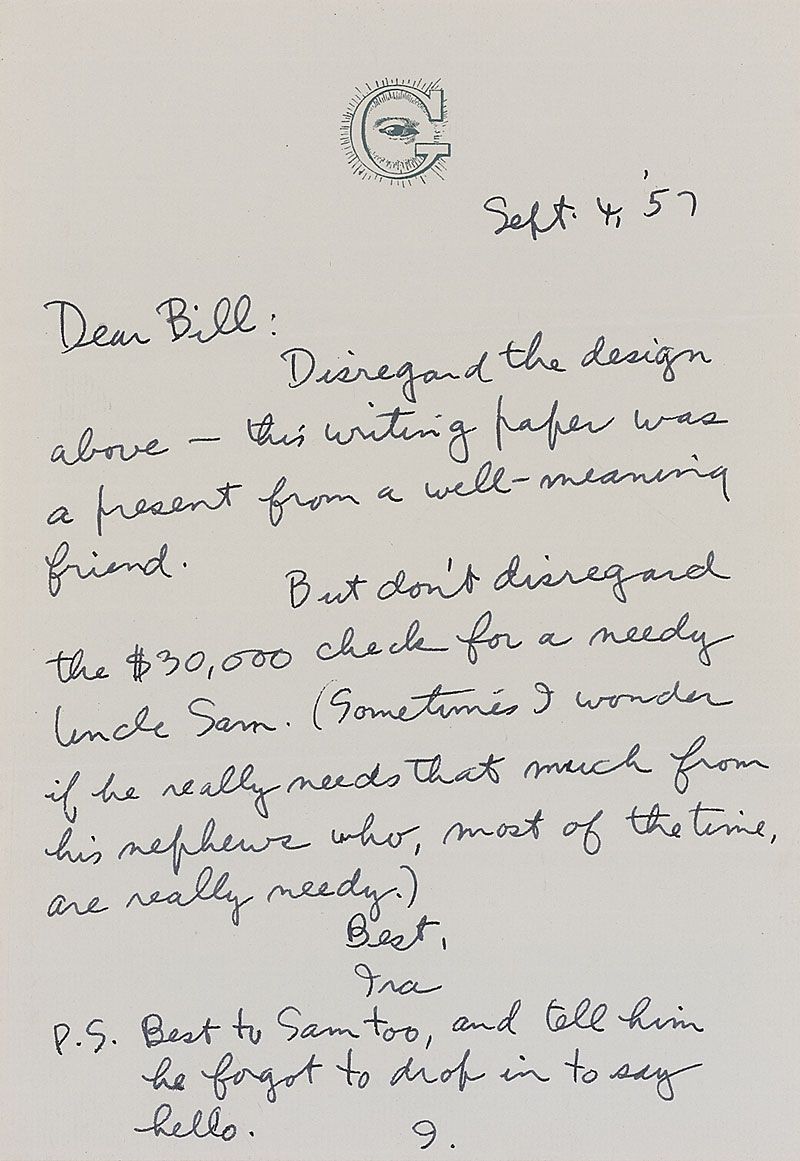 G
Sept. 4, '57
Dear Bill:
Disregard the design
above — this writing paper was
a present from a well-meaning
friend.
But don't disregard
the $30,000 check for a needy
Uncle Sam. (Sometimes I wonder
if he really needs that much from
his nephews who, most of the time,
are really needy.)
Best,
Ira
P.S. Best to Sam too, and tell him
he forgot to drop in to say
hello. I.